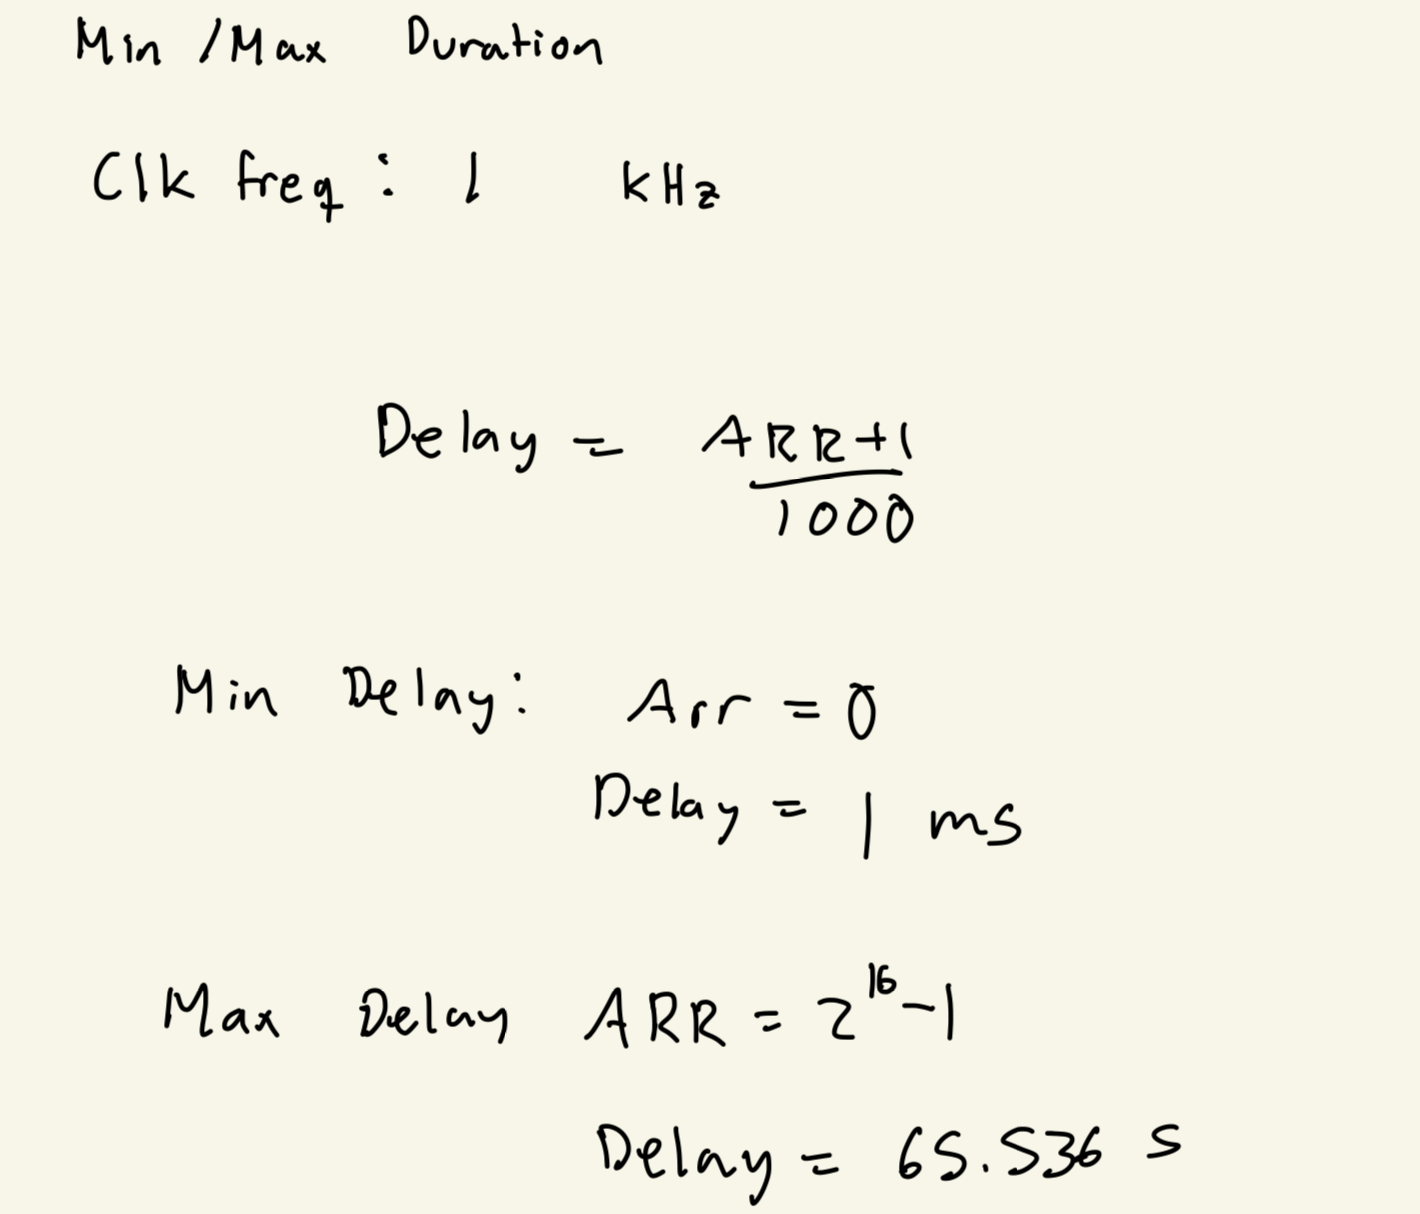 Min /Max Duration
Clk freq: 1 kHz
Delay = ARR+1
1000
Min Delay: Arr = 0
Delay = 1 ms
Max Delay ARR = 2^16-1
Delay = 65.536 s